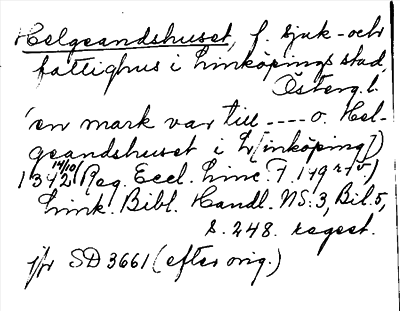 Helgeandshuset, f. sjuk- och
fattighus i Linköpings stad,
Österg.l.
'en mark var till ---- o. Hel-
geandshuset i L[inköping]'
1342 14/10 Reg. Eccl. Linc. F. 149 r
Link. Bibl. Handl. NS: 3, Bil. 5,
s. 248. regest.
jfr SD 3661 (efter orig.)